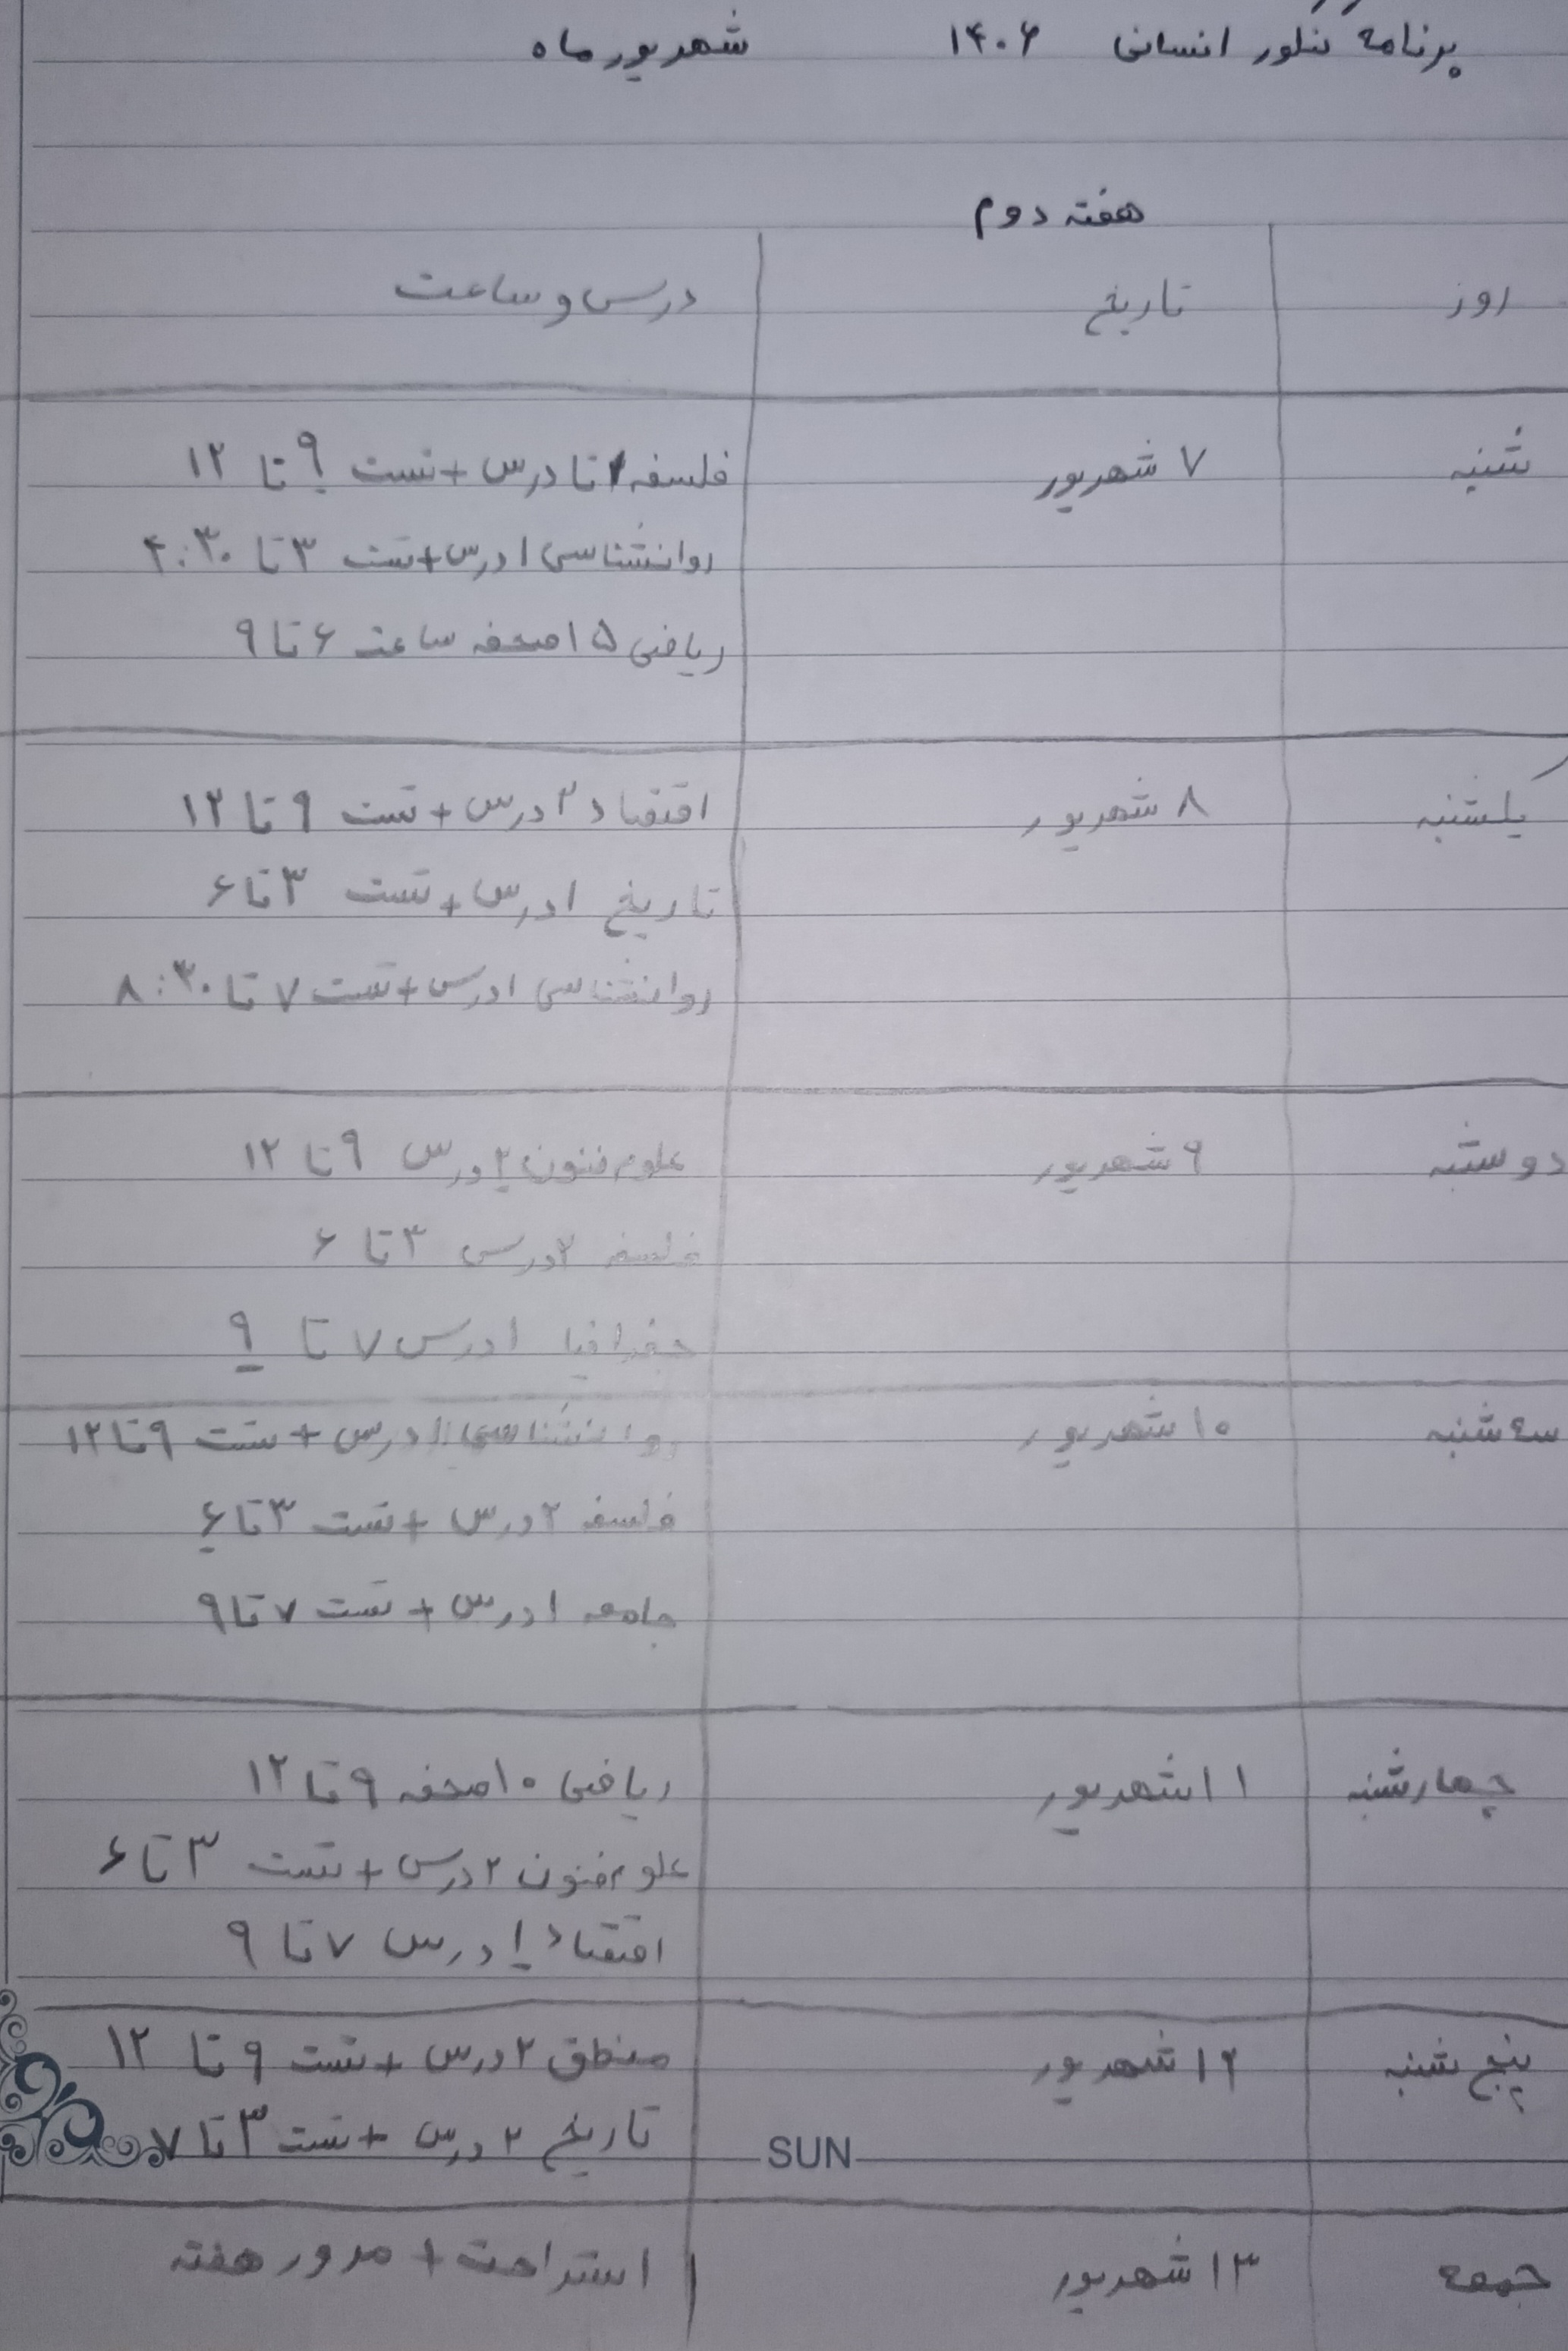 برنامه کنکور انسانی ۱۴۰۶ شهریور ماه
هفته دوم
روز تاریخ درس و ساعت
شنبه ۷ شهریور فلسفه ۱ تا درس + تست ۹ تا ۱۲
روانشناسی ۱ درس + تست ۳ تا ۴:۳۰
ریاضی ۱۵ صحفه ساعت ۶ تا ۹
یکشنبه ۸ شهریور اقتصاد ۲ درس + تست ۹ تا ۱۲
تاریخ ۱ درس + تست ۳ تا ۶
روانشناسی ۱ درس + تست ۷ تا ۸:۳۰
دوشنبه ۹ شهریور علوم فنون ۲ درس ۹ تا ۱۲
فلسفه ۲ درس ۳ تا ۶
جغرافیا ۱ درس ۷ تا ۹
سه شنبه ۱۰ شهریور روانشناسی درس + تست ۹ تا ۱۲
فلسفه ۲ درس + تست ۳ تا ۶
جامعه ۱ درس + تست ۷ تا ۹
چهارشنبه ۱۱ شهریور ریاضی ۱۰ صحفه ۹ تا ۱۲
علوم فنون ۲ درس + تست ۳ تا ۶
اقتصاد ۱ درس ۷ تا ۹
پنج شنبه ۱۲ شهریور منطق ۲ درس + تست ۹ تا ۱۲
تاریخ ۲ درس + تست ۳ تا ۷
SUN
جمعه ۱۳ شهریور استراحت + مرور هفته